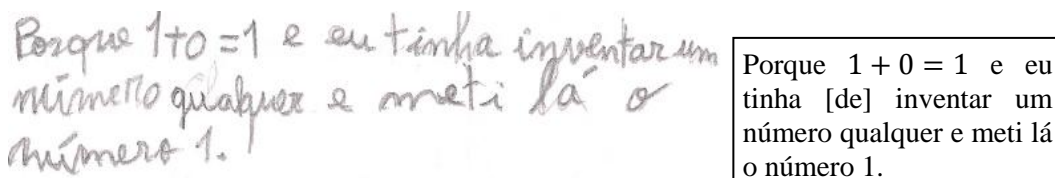 Porque 1+0=1 e eu tinha inventar um
número qualquer e meti lá o
número 1.
Porque 1 + 0 = 1 e eu
tinha [de] inventar um
número qualquer e meti lá
o número 1.